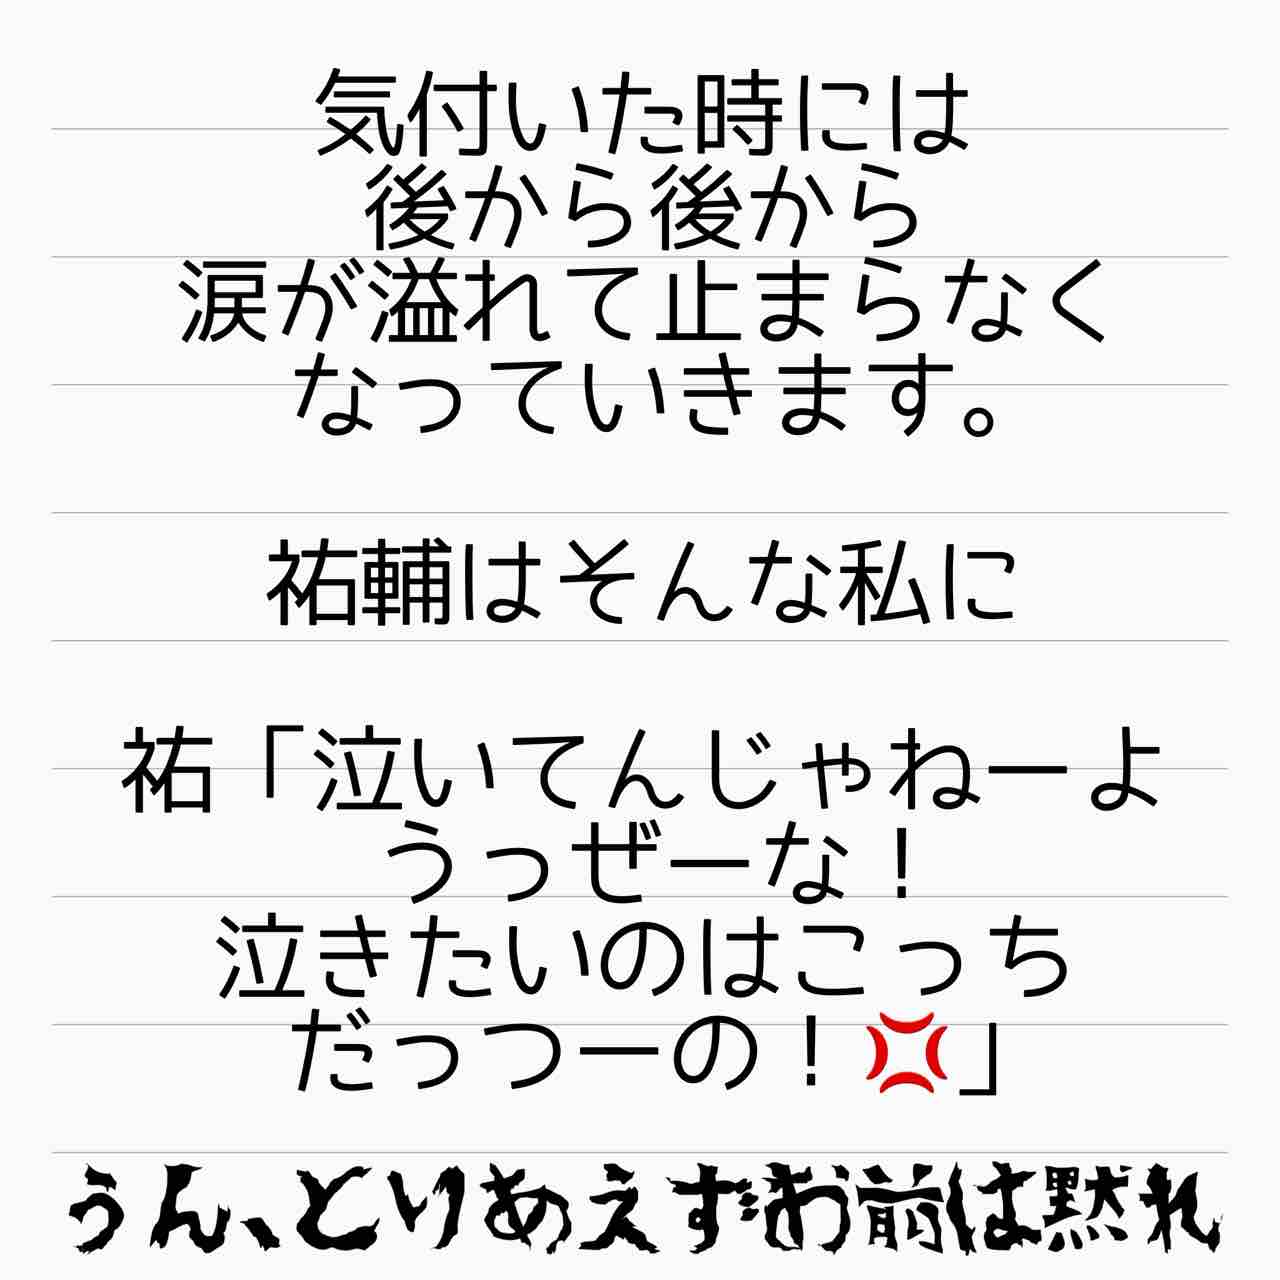 気付いた時には
後から後から
涙が溢れて止まらなく
なっていきます。
祐輔はそんな私に
祐「泣いてんじゃねーよ
うっぜーな！
泣きたいのはこっち
だっつーの！💢」
うん、とりあえずお前は黙れ